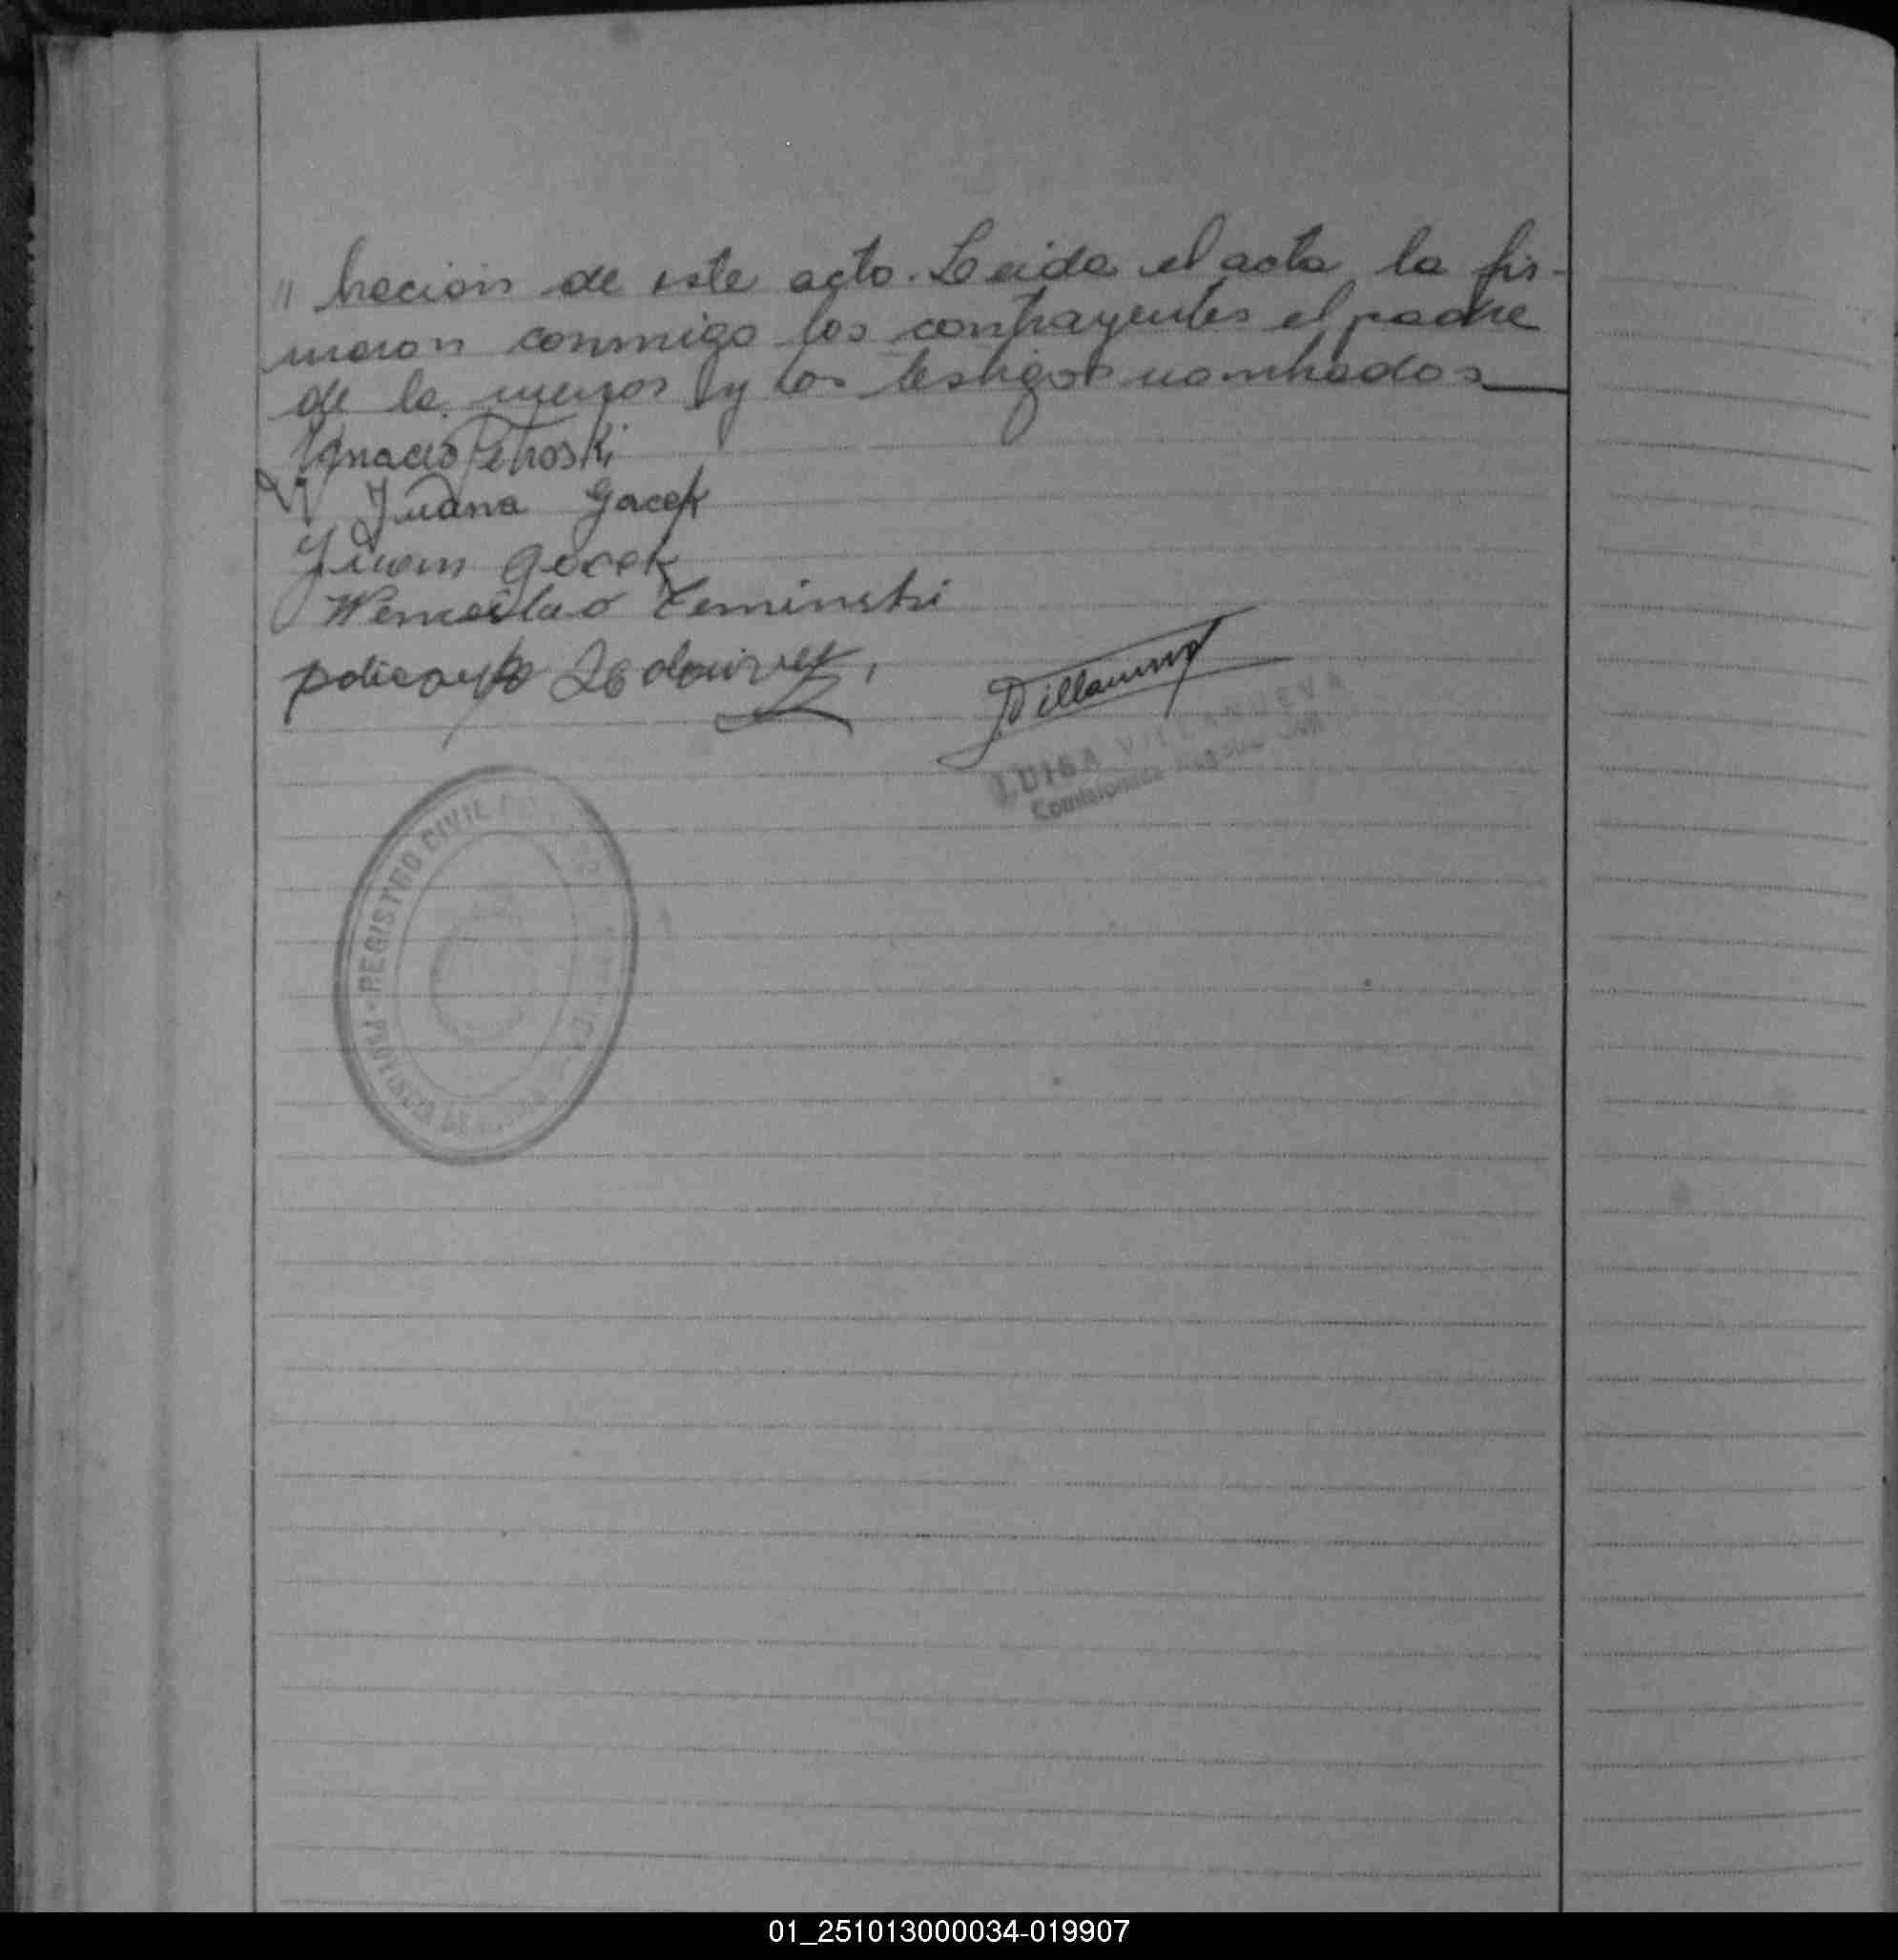 " bración de este acto. Leida el acta la fir-
maron conmigo los contrayentes el padre
de la menor y los testigos nombrados
Ignacio Petroski
Juana Gacek
Juan Gacek
Wenceslao Zeminski
policarpo
Villanueva
LUISA VILLANUEVA
Comisionada Registro Civil
PROVINCIA DE - REGISTRO CIVIL
01_251013000034-019907